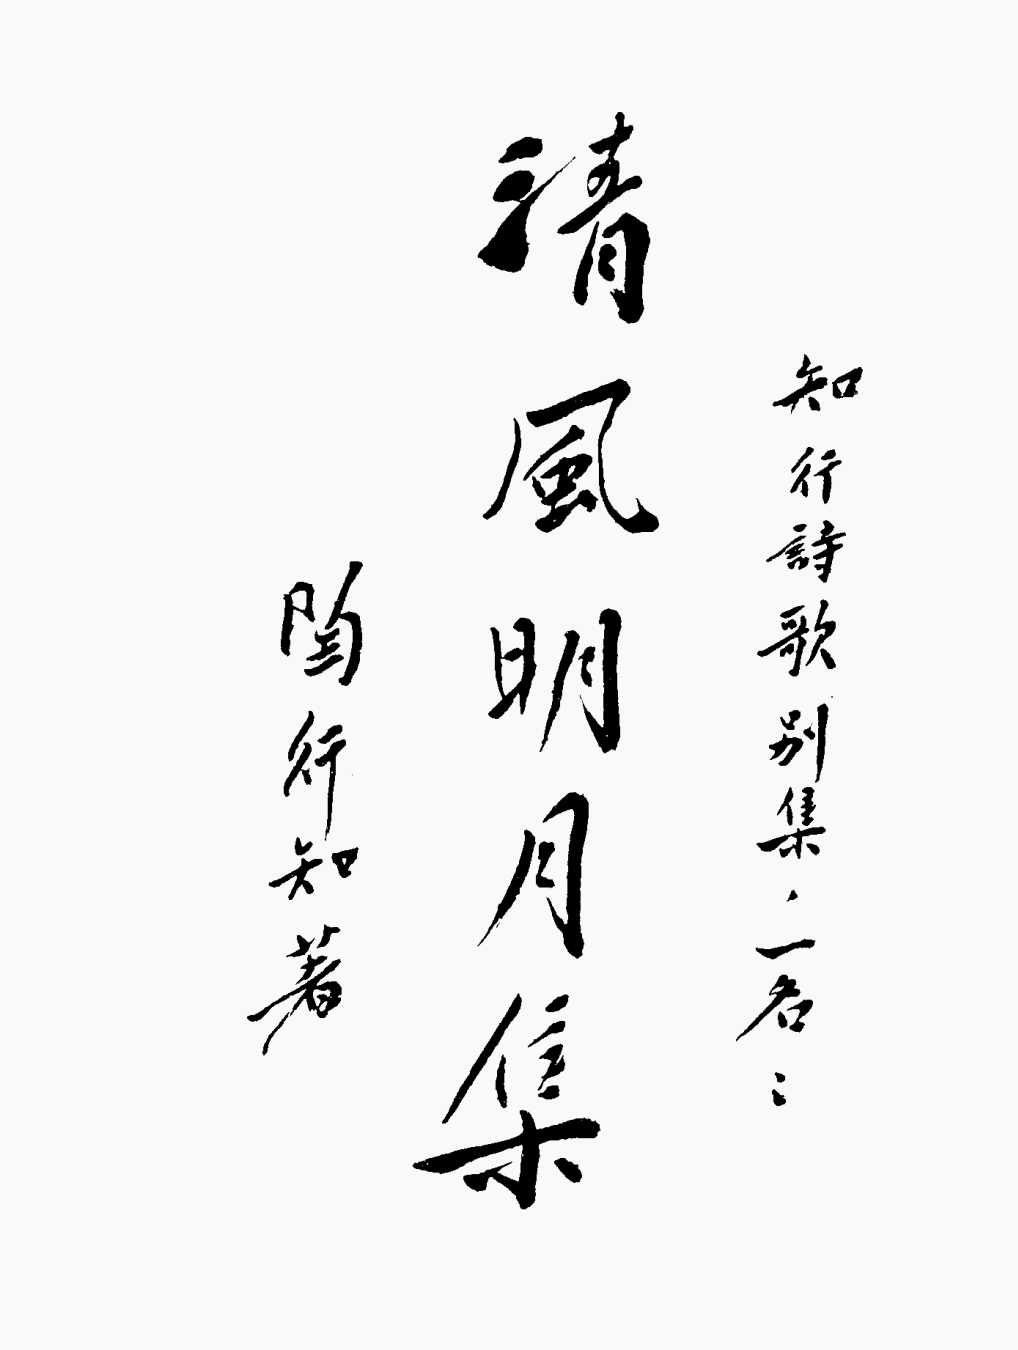 知行詩歌別集·一名:
清風明月集
陶行知著